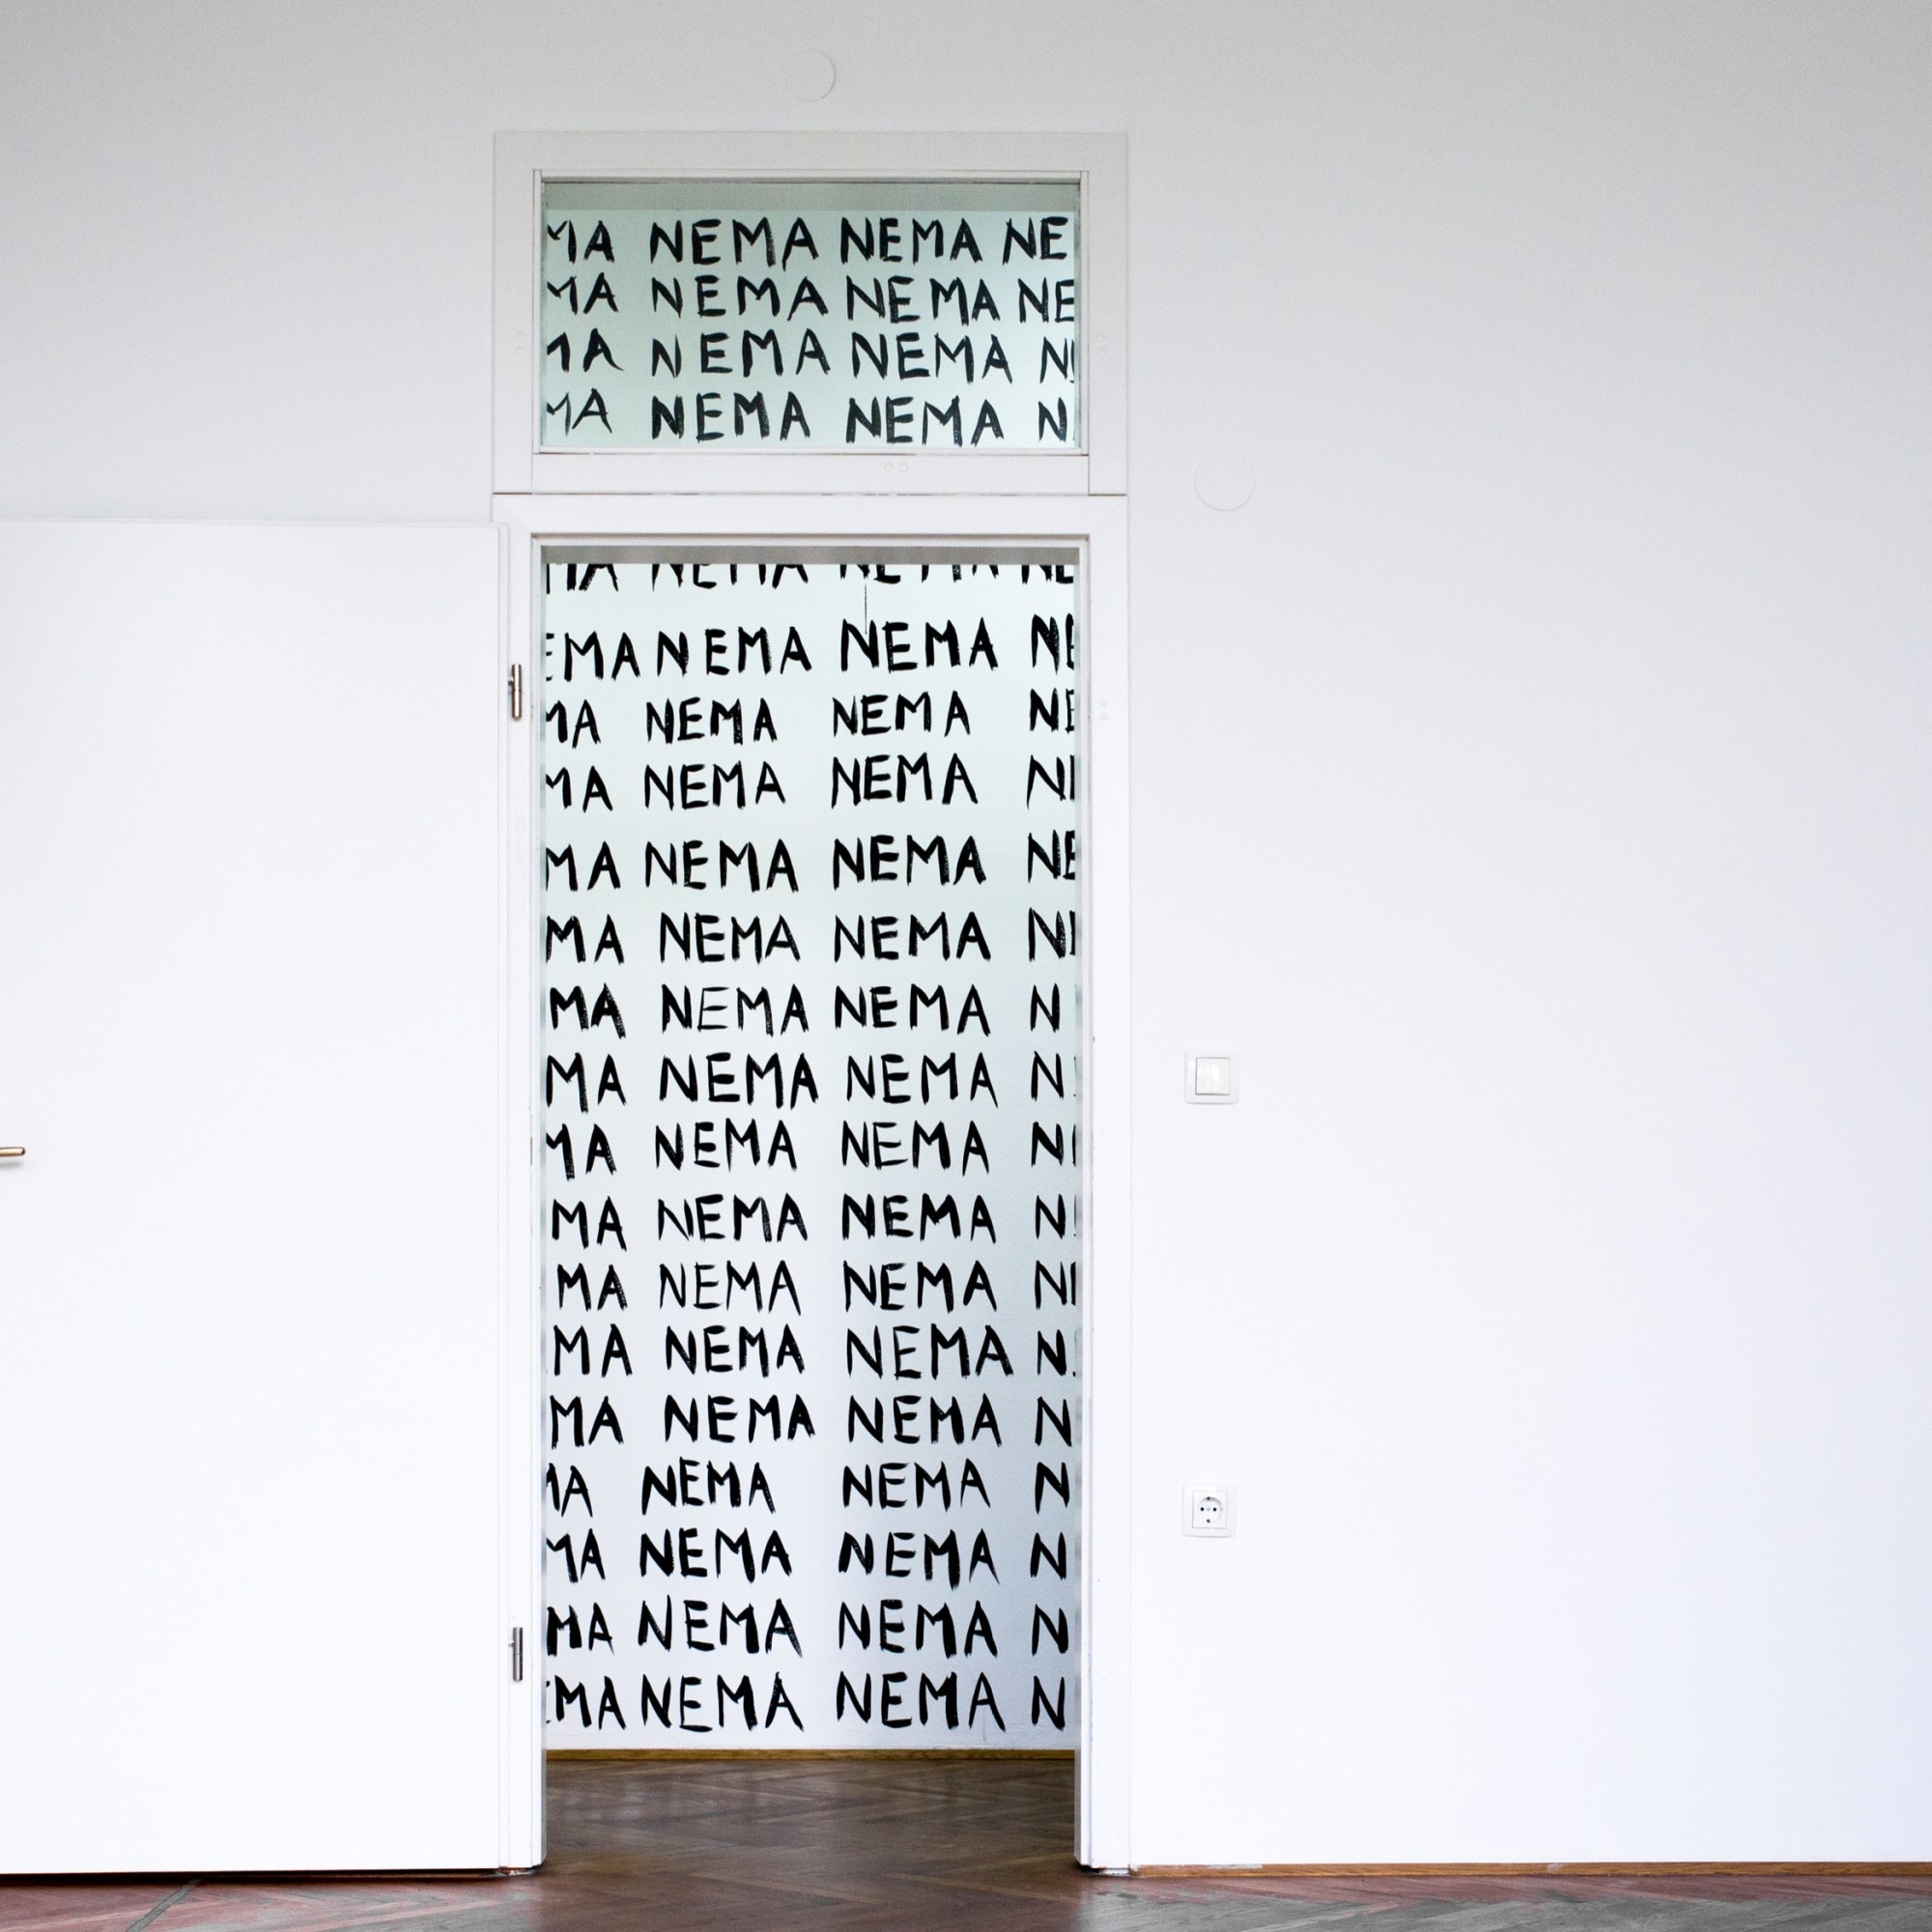 MA NEMA NEMA NE
MA NEMA NEMA NE
MA NEMA NEMA N
MA NEMA NEMA N
MA NEMA NEMA NE
EMA NEMA NEMA NE
MA NEMA NEMA NE
MA NEMA NEMA N
MA NEMA NEMA NE
MA NEMA NEMA N
MA NEMA NEMA N
MA NEMA NEMA N
MA NEMA NEMA N
MA NEMA NEMA N
MA NEMA NEMA N
MA NEMA NEMA N
MA NEMA NEMA N
MA NEMA NEMA N
MA NEMA NEMA N
MA NEMA NEMA N
EMA NEMA NEMA N